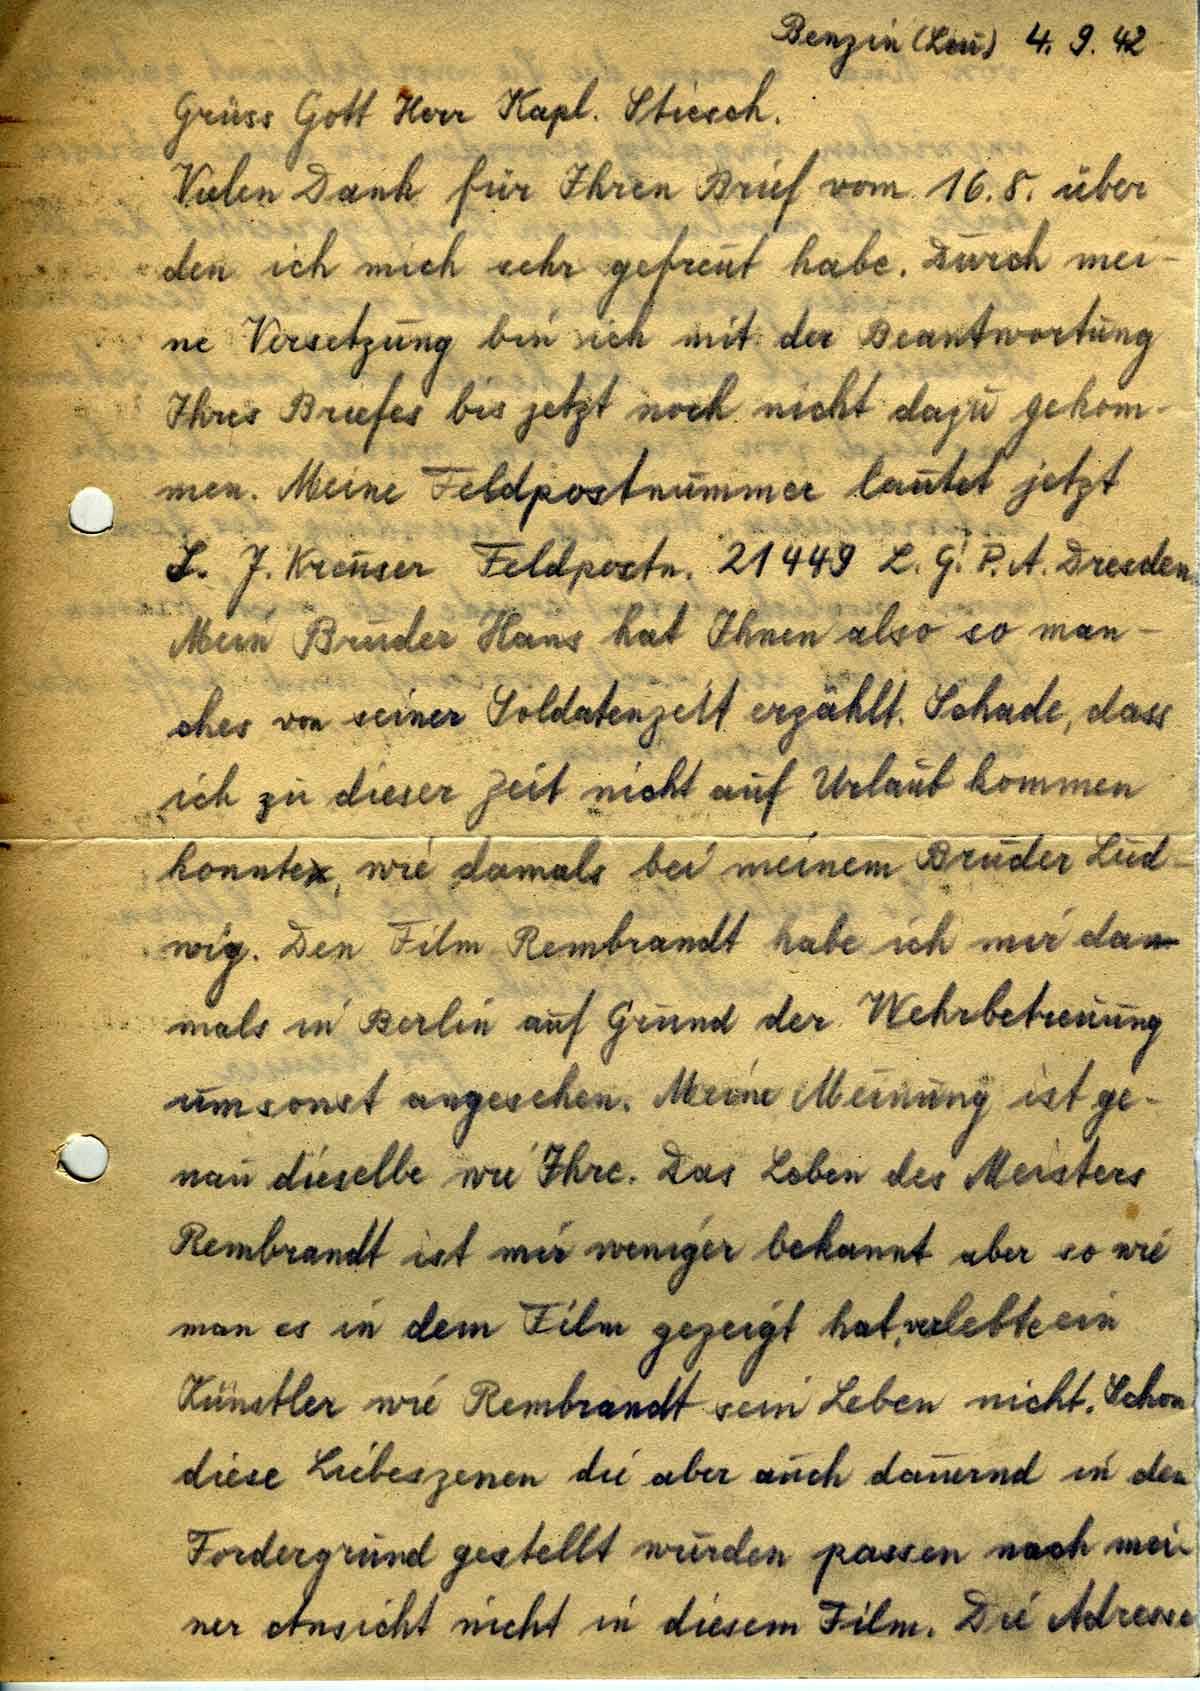 Benzin (Leu) 4. 9. 42
Grüss Gott Herr Kapl. Stiesch.
Vielen Dank für Ihren Brief vom 16.8. über
den ich mich sehr gefreut habe. Durch mei-
ne Versetzung bin ich mit der Beantwortung
Ihres Briefes bis jetzt noch nicht dazu gekom-
men. Meine Feldpostnummer lautet jetzt
S. J. Kreuser Feldpostn. 21449 L. G. P. A. Dresden
Mein Bruder Hans hat Ihnen also so man-
ches von seiner Soldatenzeit erzählt. Schade, dass
ich zu dieser Zeit nicht auf Urlaub kommen
konnte, wie damals bei meinem Bruder Lud-
wig. Den Film Rembrandt habe ich mir da-
mals in Berlin auf Grund der Wehrbetreuung
umsonst angesehen. Meine Meinung ist ge-
nau dieselbe wie Ihre. Das Leben des Meisters
Rembrandt ist mir weniger bekannt aber so wie
man es in dem Film gezeigt hat, verlebte ein
Künstler wie Rembrandt sein Leben nicht. Schon
diese Liebeszenen die aber auch dauernd in den
Fordergrund gestellt wurden passen nach mei-
ner Ansicht nicht in diesem Film. Die Adresse